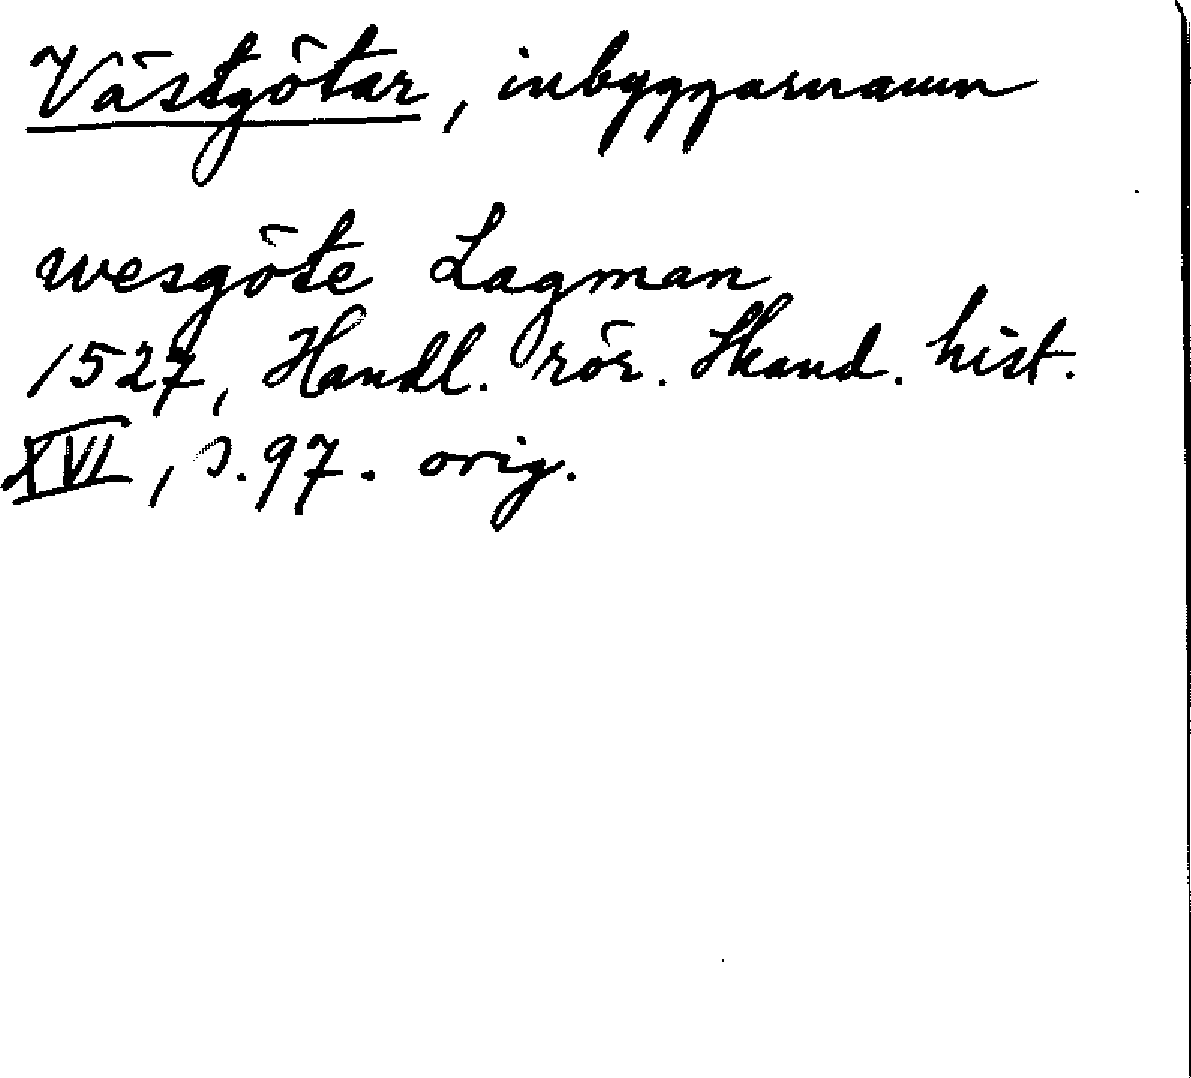 Västgötar, inbyggarnamn
wesgöte Lagman
1527, Handl. rör. Skand. hist.
XVI, s. 97. orig.